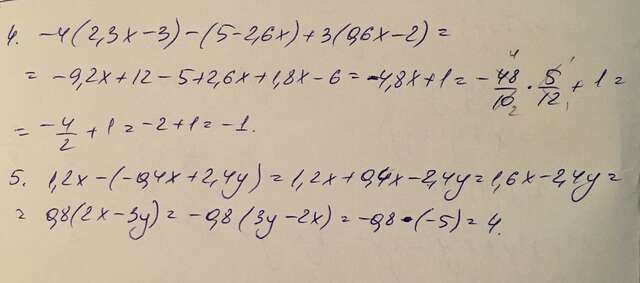 4. -4(2,3x-3)-(5-2,6x)+3(0,6x-2)=
= -9,2x+12-5+2,6x+1,8x-6= -4,8x+1= -48/10 · 5/12 + 1 =
= -4/2 + 1 = -2+1 = -1.
5. 1,2x-(-0,4x+2,4y)=1,2x+0,4x-2,4y=1,6x-2,4y=
= 0,8(2x-3y)= -0,8(3y-2x)= -0,8·(-5)=4.